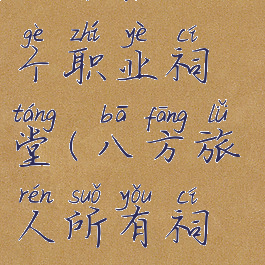 gè zhí yè cí
个职业祠
táng bā fāng lǚ
堂（八方旅
rén suǒ yǒu cí
人所有祠